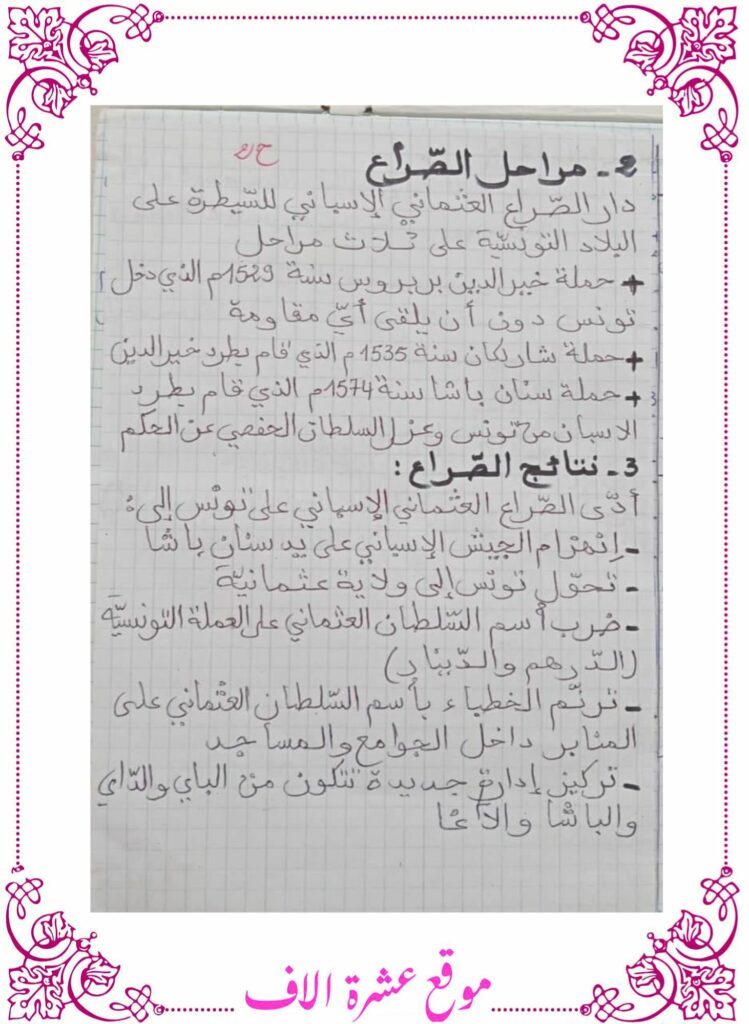 ح2
2 - مراحل الصّراع
دار الصّراع العثماني الإسباني للسّيطرة على
البلاد التونسيّة على ثلاث مراحل
+ حملة خير الدين بربروس سنة 1529م الذي دخل
تونس دون أن يلقى أيّ مقاومة
+ حملة شارلكان سنة 1535م الذي قام بطرد خير الدين
+ حملة سنان باشا سنة 1574م الذي قام بطرد
الاسبان من تونس وعزل السلطان الحفصي عن الحكم
3 - نتائج الصّراع :
أدّى الصّراع العثماني الإسباني على تونس إلى :
- إنهزام الجيش الإسباني على يد سنان باشا
- تحوّل تونس إلى ولاية عثمانيّة
- ضرب أسم السّلطان العثماني على العملة التونسيّة
(الدّرهم والدّينار)
- ترنّم الخطباء بأسم السّلطان العثماني على
المنابر داخل الجوامع والمساجد
- تركيز إدارة جديدة تتكون من الباي والدّاي
والباشا والآغا
موقع عشرة الاف